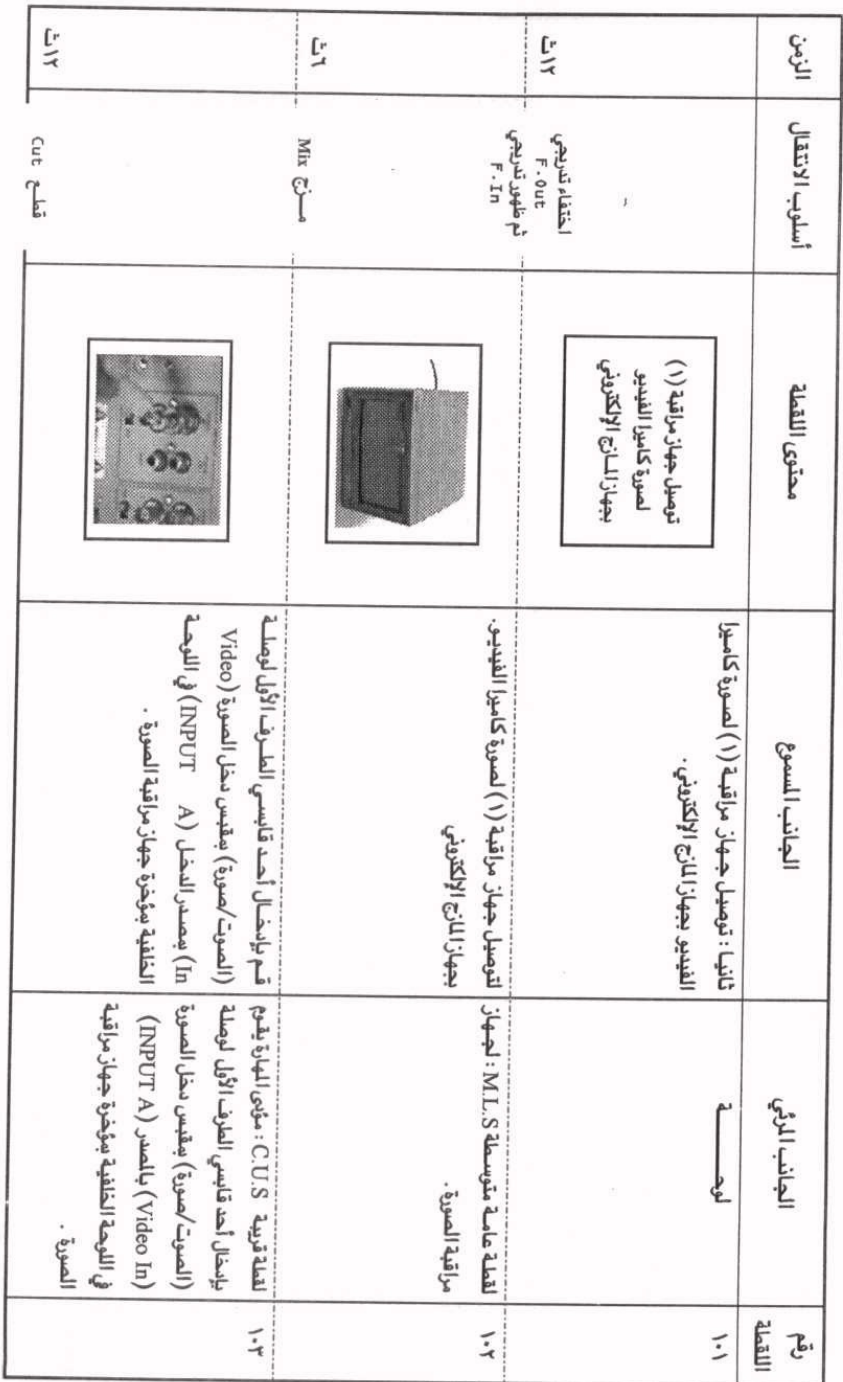 رقم
اللقطة
الجانب المرئي
الجانب المسموع
محتوى اللقطة
أسلوب الانتقال
الزمن
١٠١
لوحـــــــة
ثانيا : توصيل جهاز مراقبة (١) لصورة كاميرا
الفيديو بجهاز المازج الإلكتروني .
توصيل جهاز مراقبة (١)
لصورة كاميرا الفيديو
بجهاز المازج الإلكتروني
اختفاء تدريجي
F. Out
ثم ظهور تدريجي
F. In
١٢ث
١٠٢
لقطة عامة متوسطة M.L.S : لجهاز
مراقبة الصورة .
لتوصيل جهاز مراقبة (١) لصورة كاميرا الفيديو.
بجهاز المازج الإلكتروني
مـزج Mix
٦ث
١٠٣
لقطة قريبة C.U.S : مؤدى المهارة يقوم
بإدخال أحد قابسي الطرف الأول لوصلة
(الصوت/صورة) بمقبس دخل الصورة
(Video In) بالمصدر (INPUT A)
في اللوحة الخلفية بمؤخرة جهاز مراقبة
الصورة .
قم بإدخال أحد قابسي الطرف الأول لوصلة
(الصوت/صورة) بمقبس دخل الصورة (Video
In) بمصدر الدخل (INPUT A) في اللوحة
الخلفية بمؤخرة جهاز مراقبة الصورة .
2
قطـع Cut
١٢ث